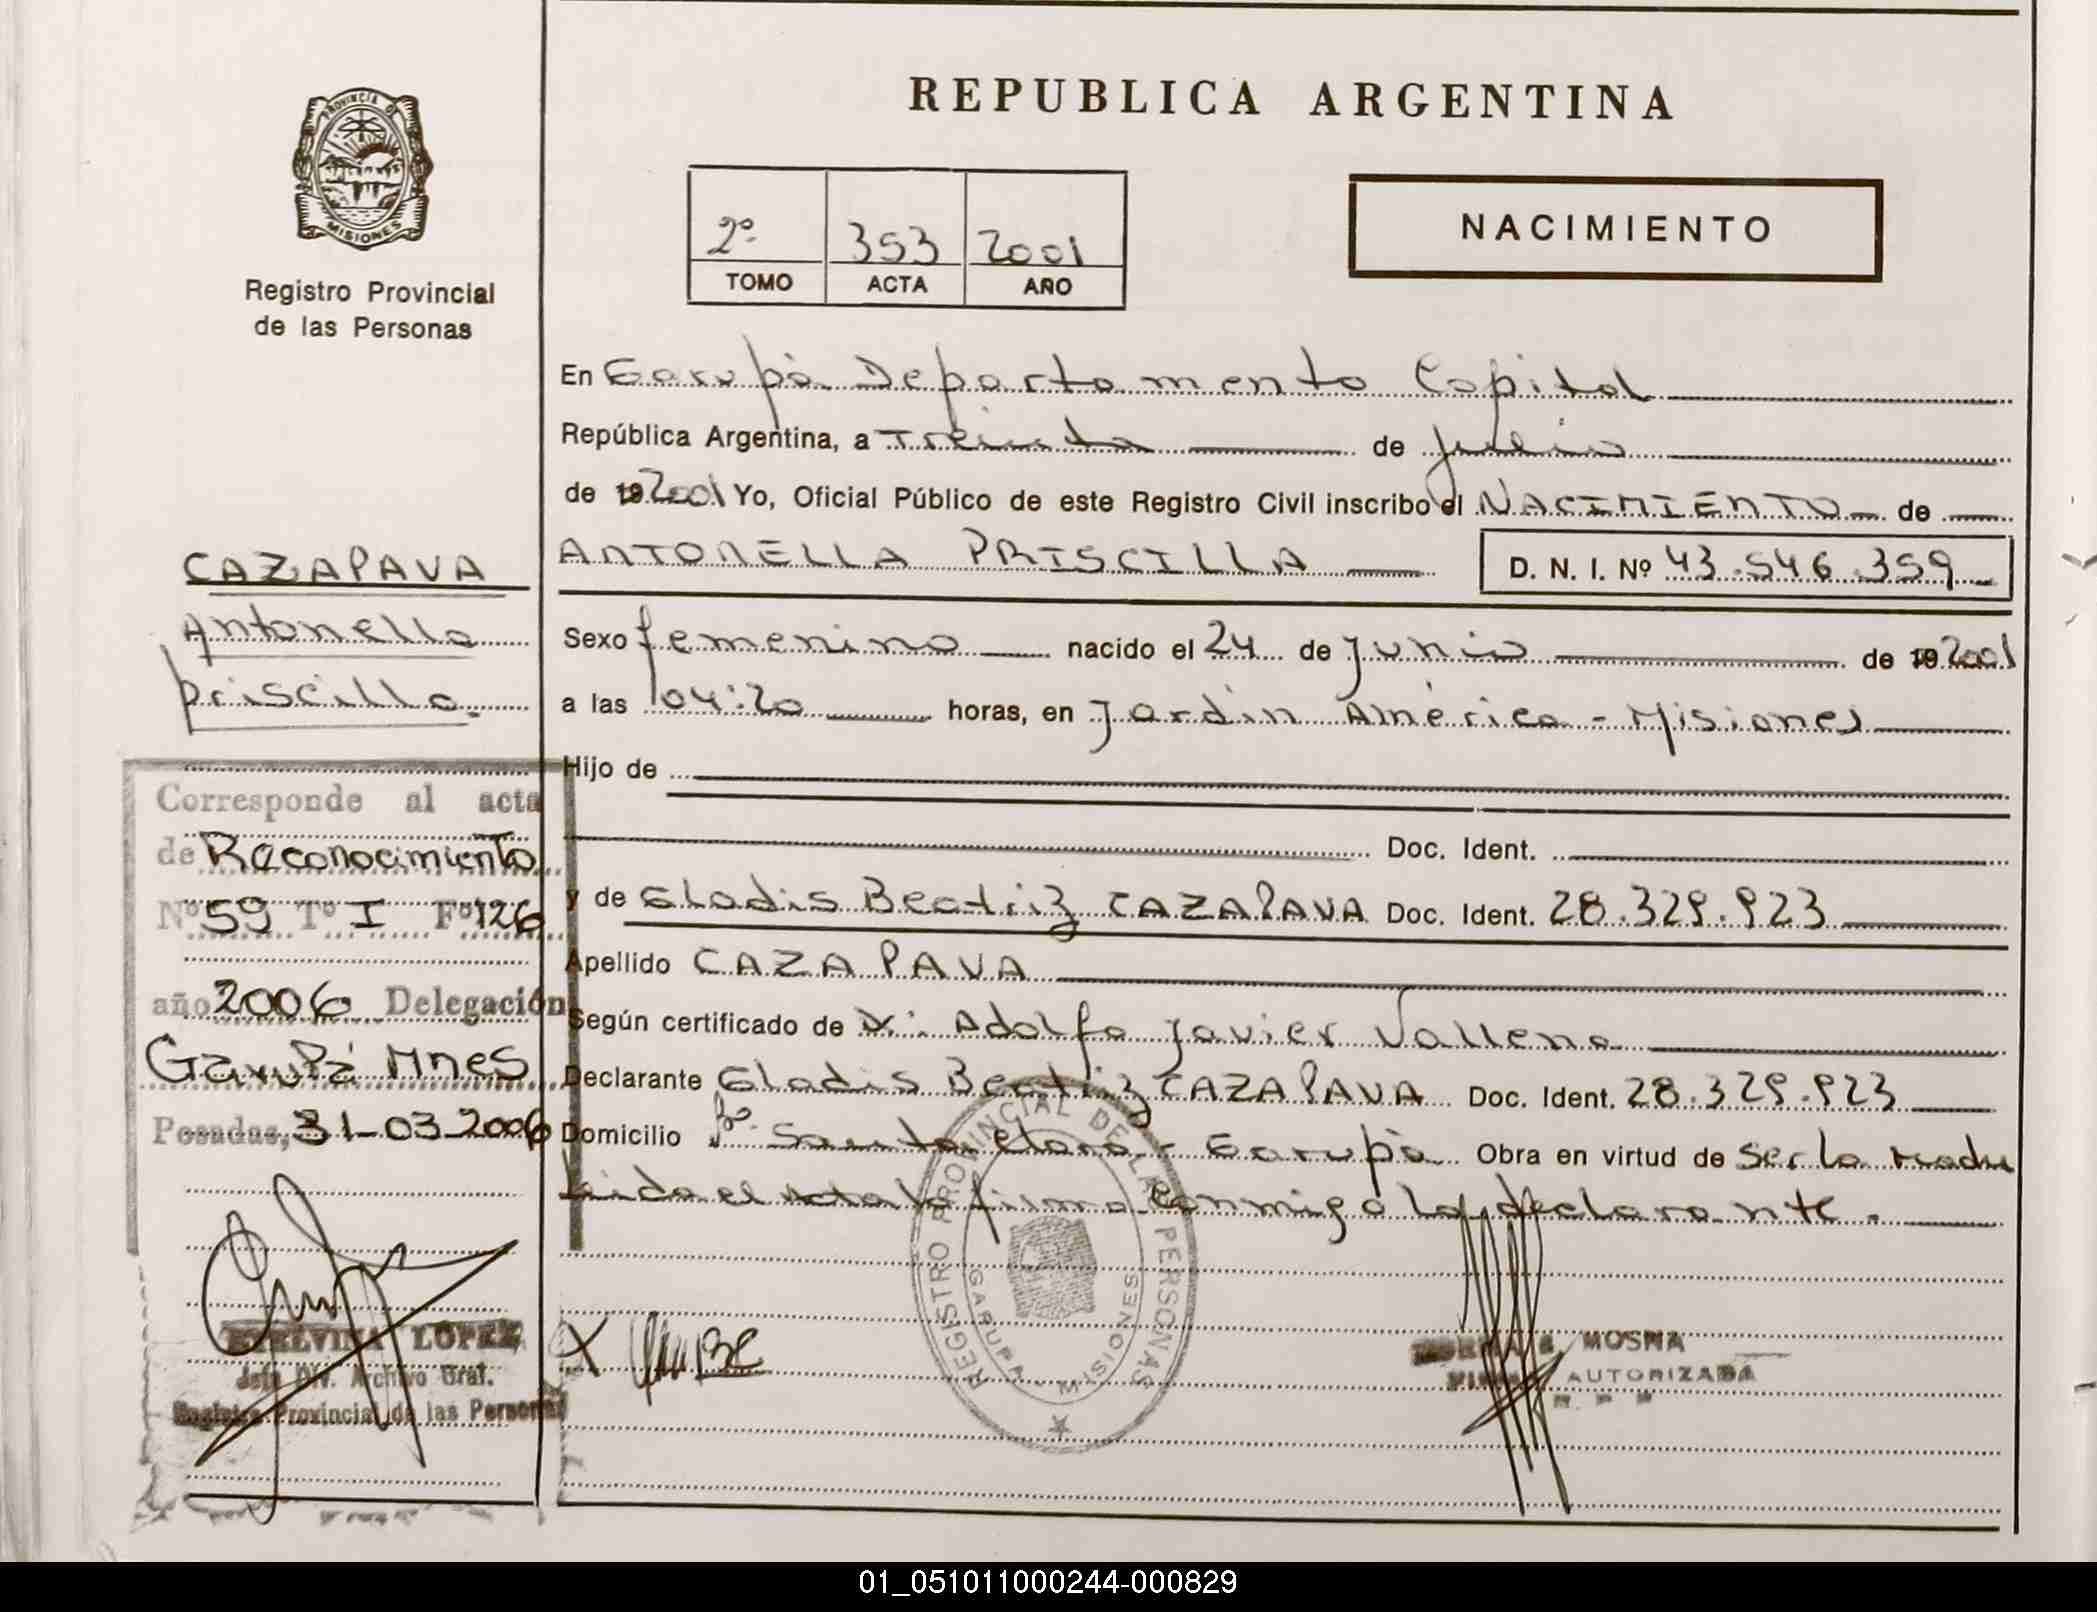 REPUBLICA ARGENTINA
PROVINCIA DE
MISIONES
Registro Provincial
de las Personas
2º 353 2001
TOMO ACTA AÑO
NACIMIENTO
En Garupá Departamento Capital
República Argentina, a Treinta de Julio
de 19 2001 Yo, Oficial Público de este Registro Civil inscribo el NACIMIENTO de
ANTONELLA PRISCILLA D. N. I. Nº 43.546.359
CAZAPAVA
Antonella
Priscilla
Sexo femenino nacido el 24 de Junio de 19 2001
a las 04:20 horas, en Jardín América - Misiones
Hijo de
Doc. Ident.
y de Gladis Beatriz CAZAPAVA Doc. Ident. 28.329.923
Apellido CAZAPAVA
Según certificado de Adolfo Javier Vallena
Declarante Gladis Beatriz CAZAPAVA Doc. Ident. 28.329.923
Domicilio Bº Santa Clara - Garupá Obra en virtud de Ser la madre
Leida el acta la firma conmigo la declarante.
Corresponde al acta
de Reconocimiento
Nº 59 Tº I Fº 126
año 2006 Delegación
Garupá Mnes
Posadas, 31-03-2006
ETELVINA LOPEZ
Jefe Div. Archivo Gral.
Registro Provincial de las Personas
REGISTRO PROVINCIAL DE LAS PERSONAS
GARUPA - MISIONES
MOSNA
AUTORIZADA
01_051011000244-000829